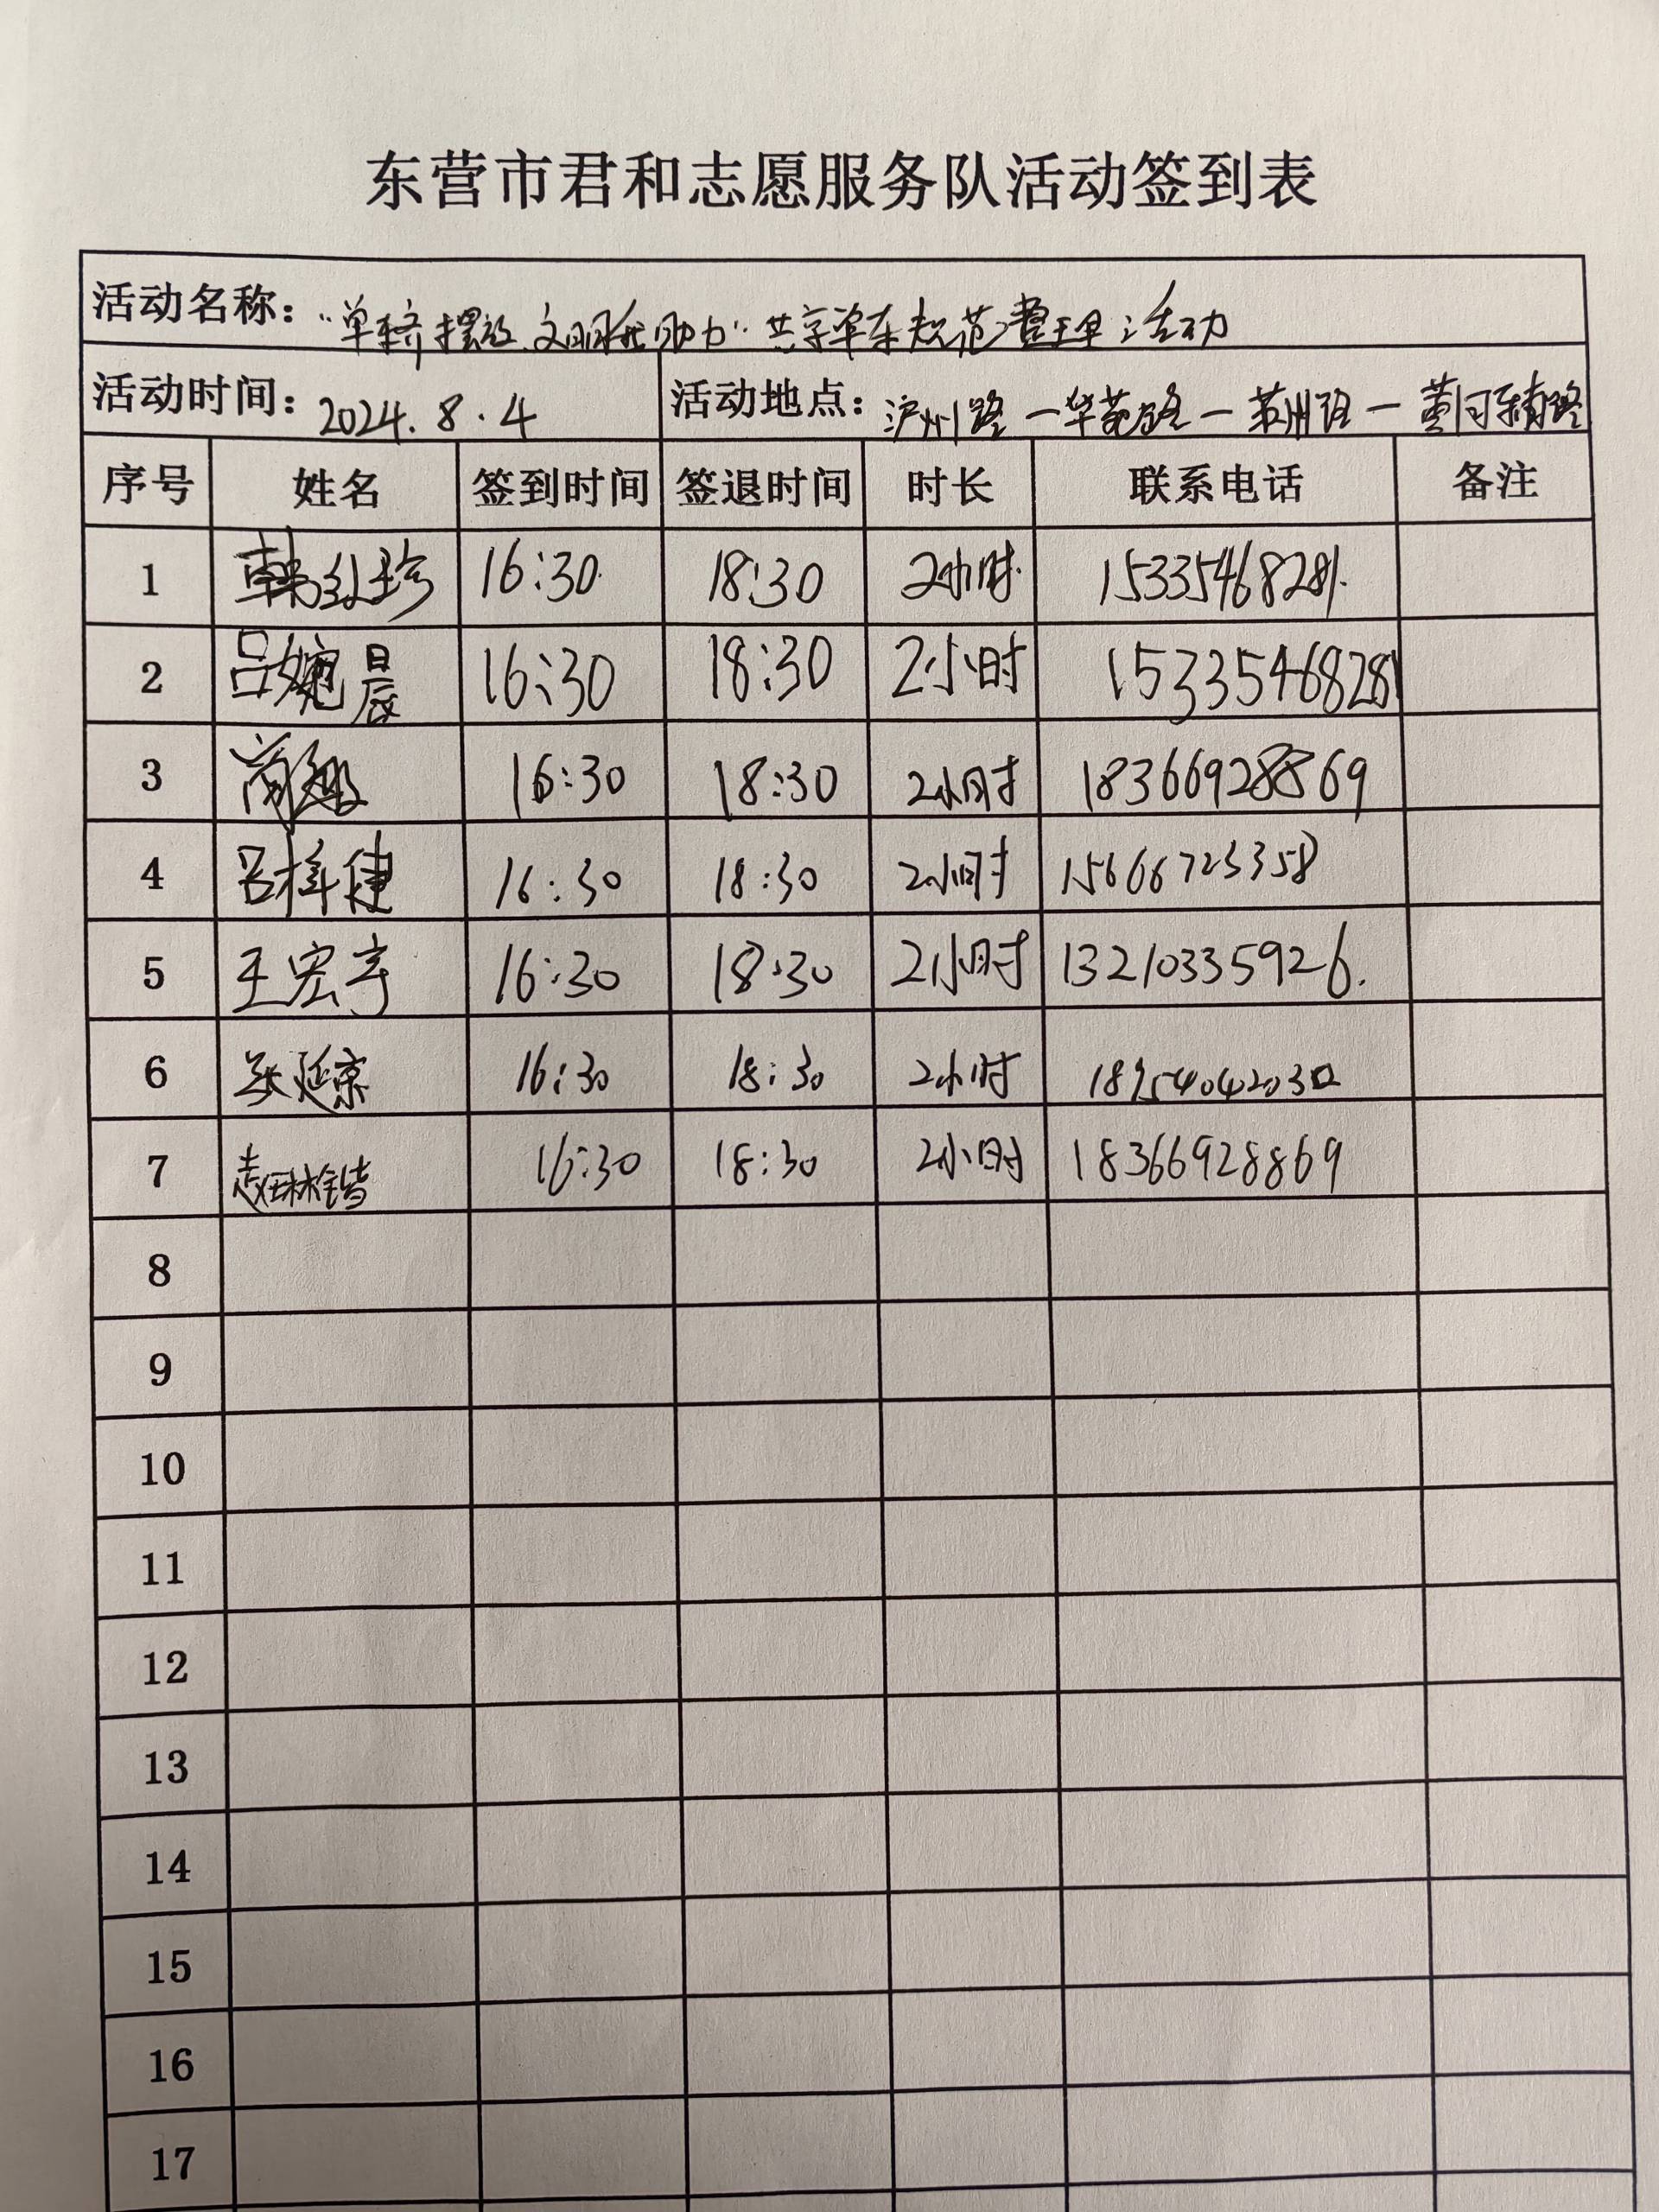 东营市君和志愿服务队活动签到表
活动名称：“单车齐摆放 文明我助力”共享单车规范整理活动
活动时间：2024.8.4 活动地点：泸州路一华苑路一苏州路一黄河东辅路
序号 姓名 签到时间 签退时间 时长 联系电话 备注
1 韩红珍 16:30 18:30 2小时 15335468281
2 吕婉晨 16:30 18:30 2小时 15335468281
3 16:30 18:30 2小时 18366928869
4 吕梓健 16:30 18:30 2小时 15666723358
5 王宏宇 16:30 18:30 2小时 13210335926.
6 张延京 16:30 18:30 2小时
7 赵琳锴 16:30 18:30 2小时 18366928869
8
9
10
11
12
13
14
15
16
17